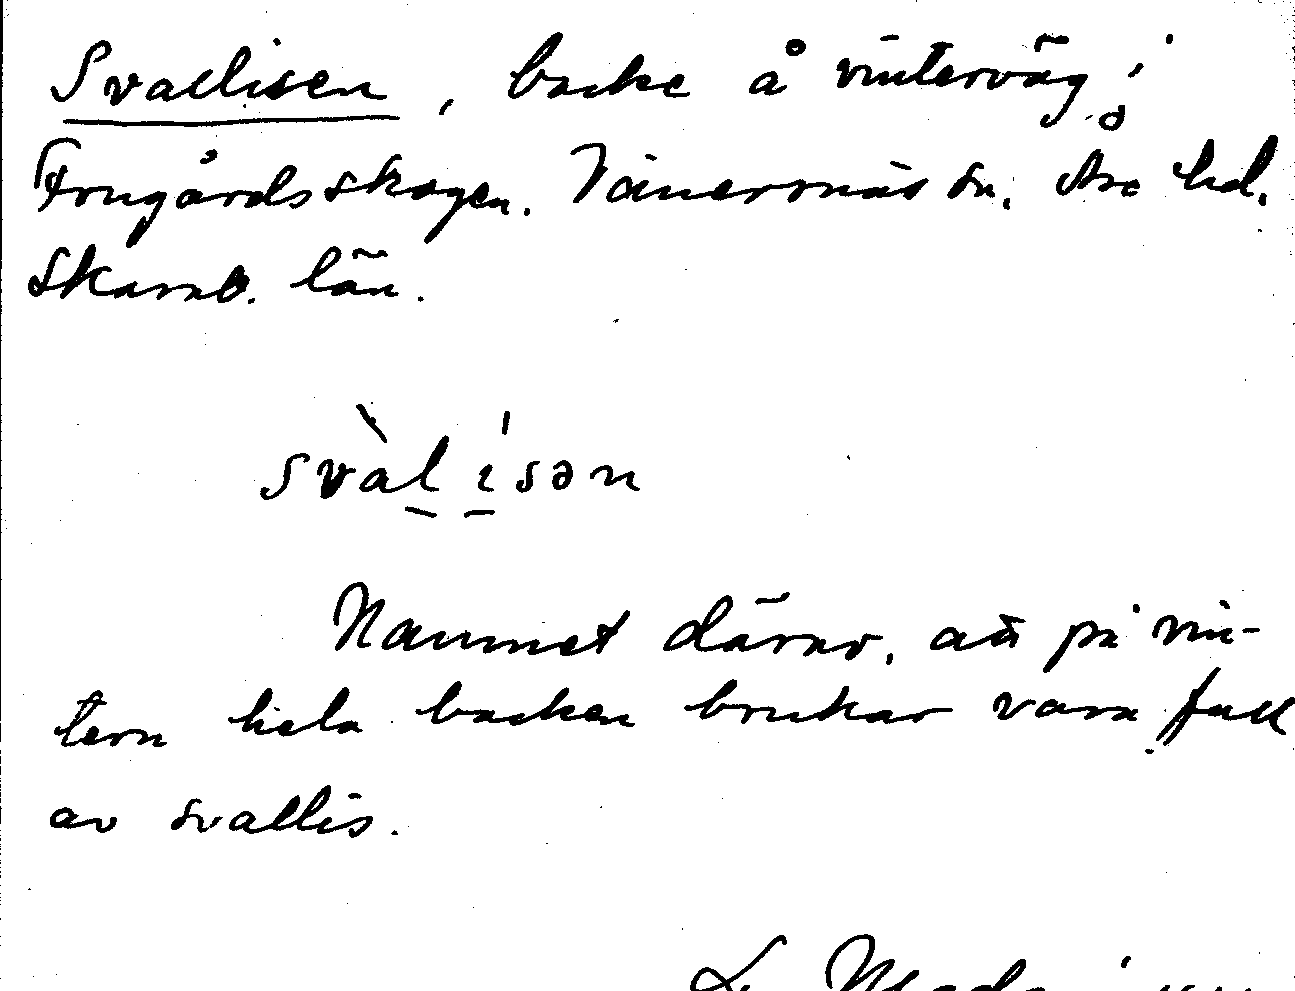 Svallisen, backe å vinterväg i
Frugårdsskogen. Vänersnäs sn. Åse hd.
Skarab. län.
svàl ísən
Namnet därav, att på vin-
tern hela backen brukar vara full
av svallis.